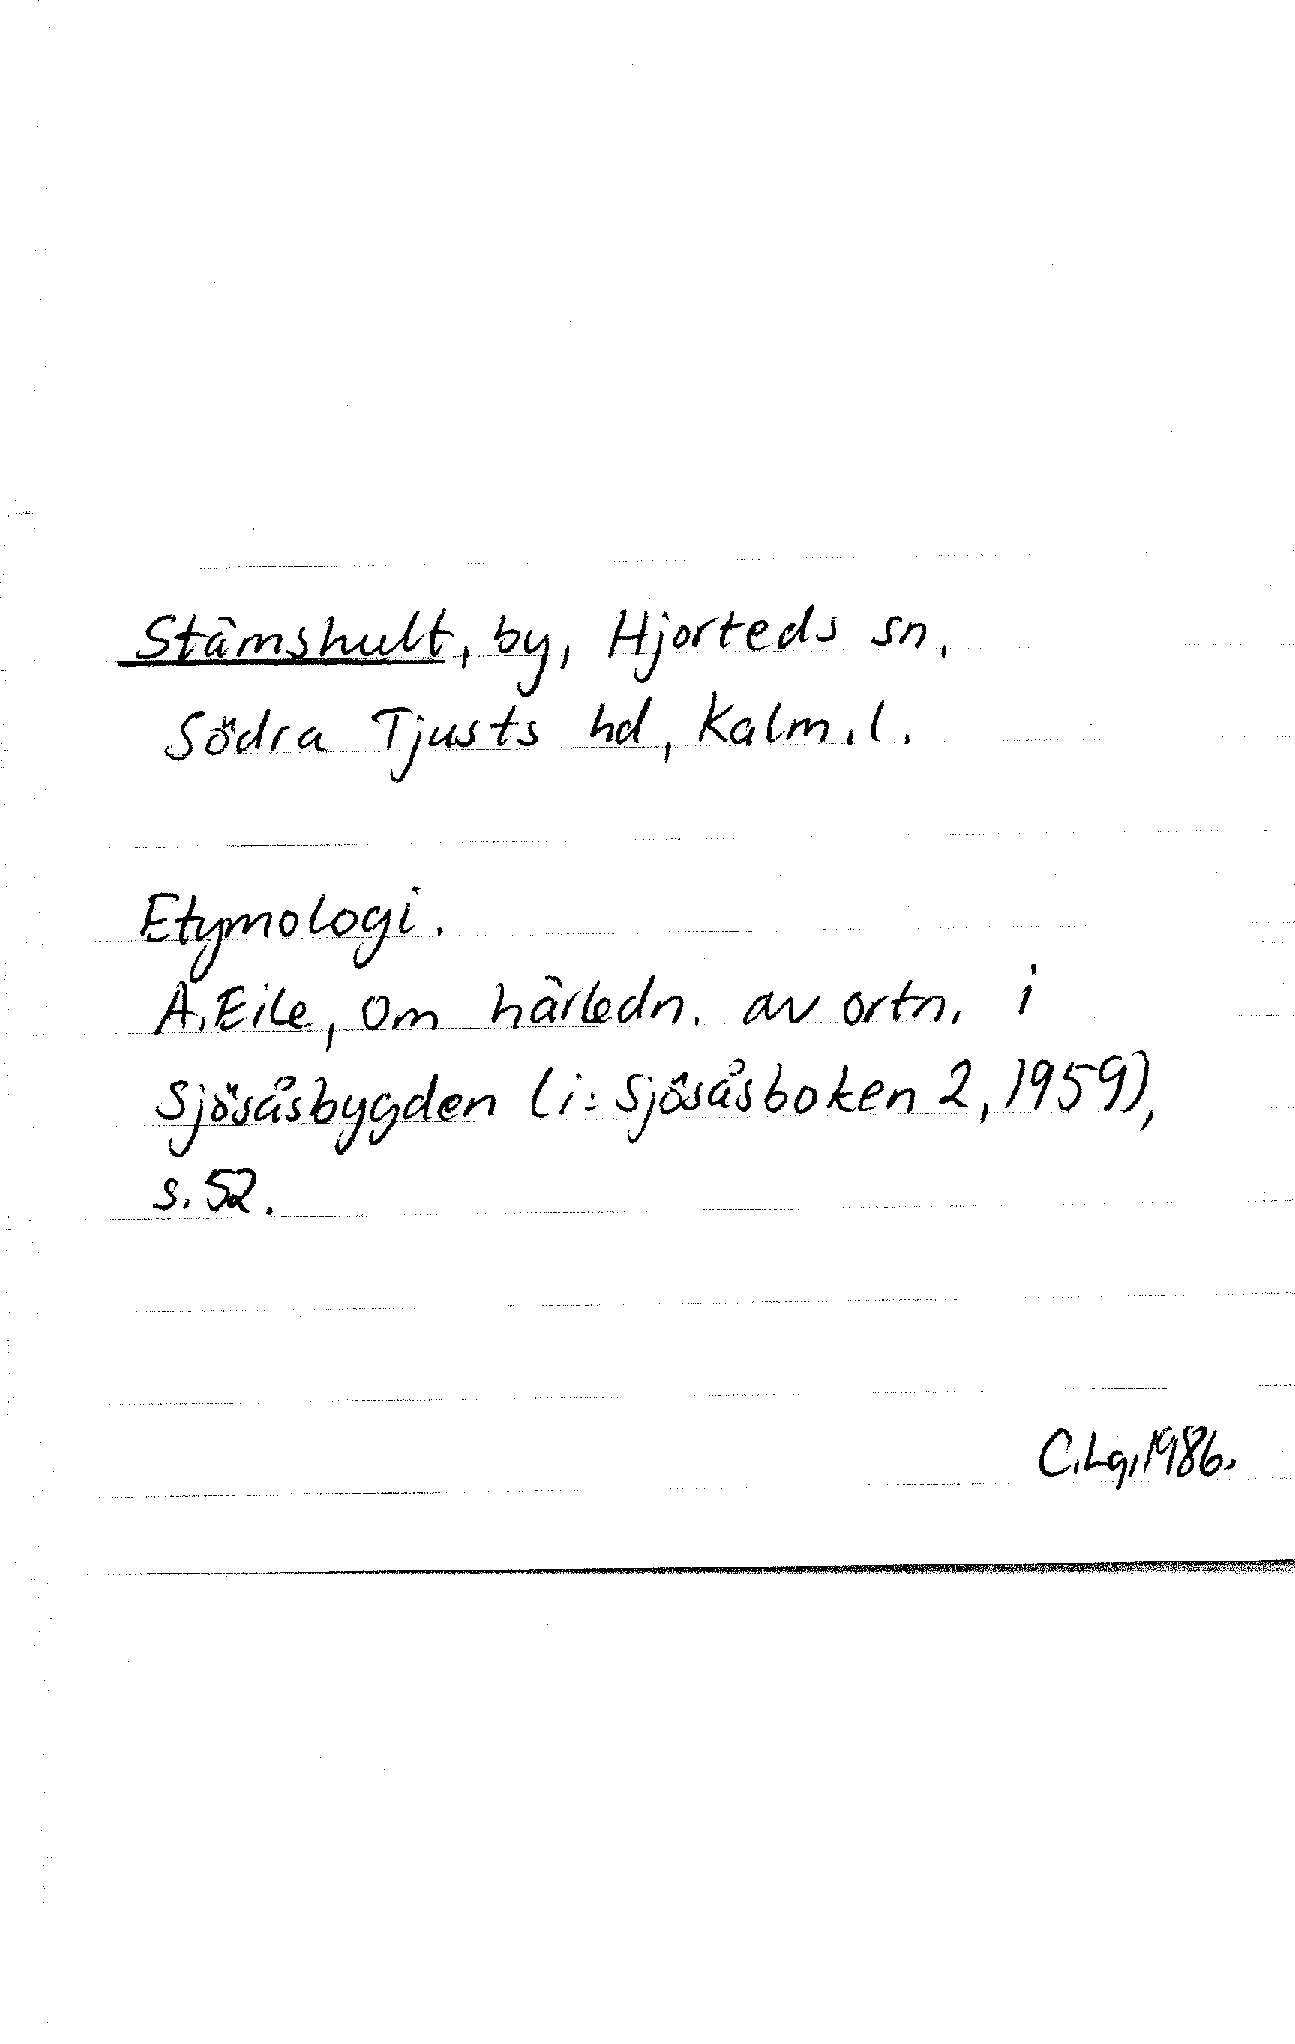 Stämshult, by, Hjorteds sn,
Södra Tjusts hd, Kalm.l.
Etymologi.
A. Eile, Om härledn. av ortn. i
Sjösåsbygden (i: Sjösåsboken 2, 1959),
s. 52.
C.Lg, 1986.